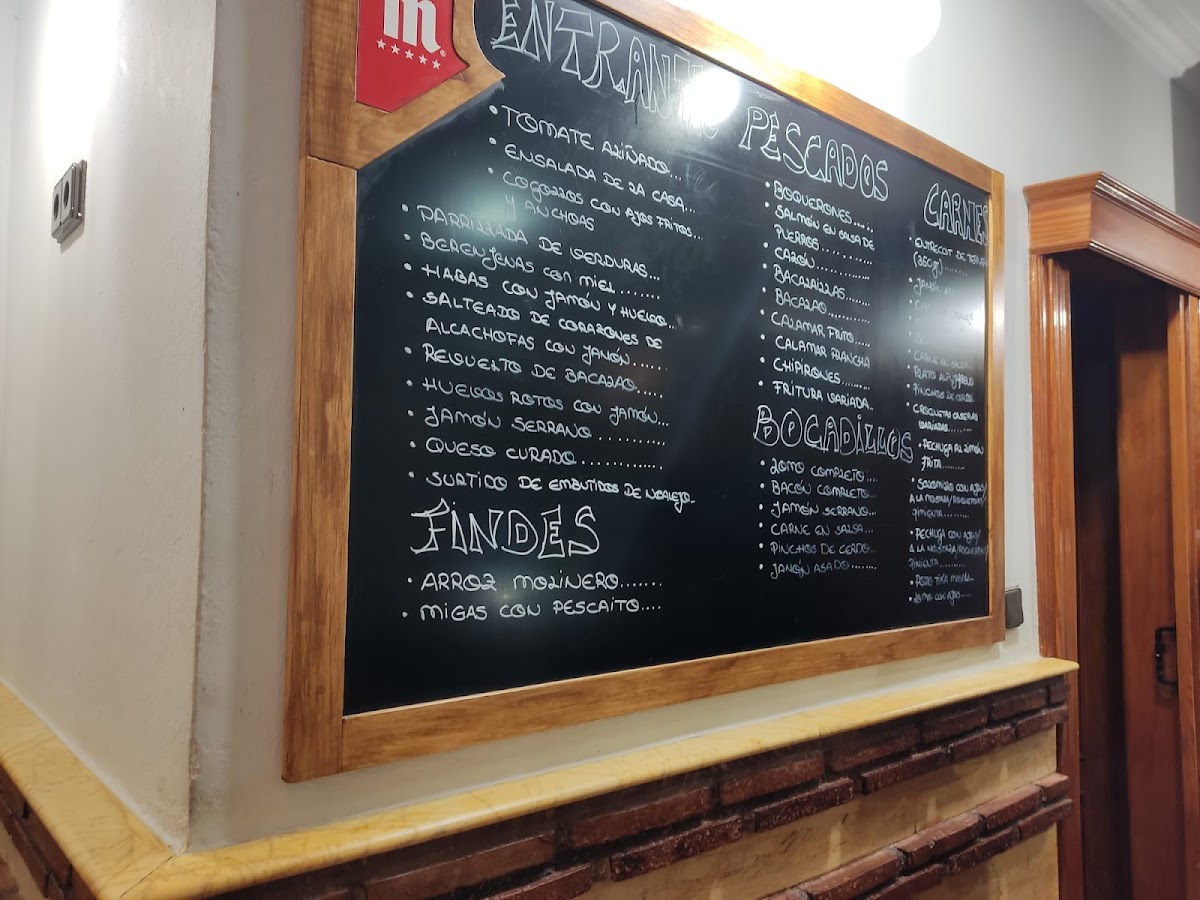 m
ENTRANTES
• TOMATE ALIÑADO...
• ENSALADA DE LA CASA...
• COGOLLOS CON AJOS FRITOS...
Y ANCHOAS
• PARRILLADA DE VERDURAS...
• BERENJENAS CON MIEL.......
• HABAS CON JAMÓN Y HUEVO...
• SALTEADO DE CORAZONES DE
ALCACHOFAS CON JAMÓN......
• REVUELTO DE BACALAO.....
• HUEVOS ROTOS CON JAMÓN...
• JAMÓN SERRANO .........
• QUESO CURADO............
• SURTIDO DE EMBUTIDOS DE NOALEJO..
FINDES
• ARROZ MOLINERO.......
• MIGAS CON PESCAITO....
PESCADOS
• BOQUERONES......
• SALMÓN EN SALSA DE
PUERROS..........
• CAZÓN............
• BACALAILLAS.......
• BACALAO.........
• CALAMAR FRITO.....
• CALAMAR PLANCHA
• CHIPIRONES.........
• FRITURA VARIADA..
BOCADILLOS
• LOMO COMPLETO....
• BACÓN COMPLETO...
• JAMÓN SERRANO...
• CARNE EN SALSA...
• PINCHOS DE CERDO..
• JAMÓN ASADO.......
CARNES
• ENTRECOT DE
(350gr)........
• JAMÓN
• CARNE EN SALSA...
• PLATO ALPUJARREÑO
• PINCHOS DE CERDO..
• CROQUETAS CASERAS
VARIADAS.......
• PECHUGA AL LIMÓN
FRITA......
• SOLOMILLO CON AJOS/
A LA MOSTAZA/ROQUEFORT/
PIMIENTA........
• PECHUGA CON AJOS/
A LA MOSTAZA/ROQUEFORT/
PIMIENTA........
• POLLO TIKA MASALA...
• LOMO CON AJOS.....